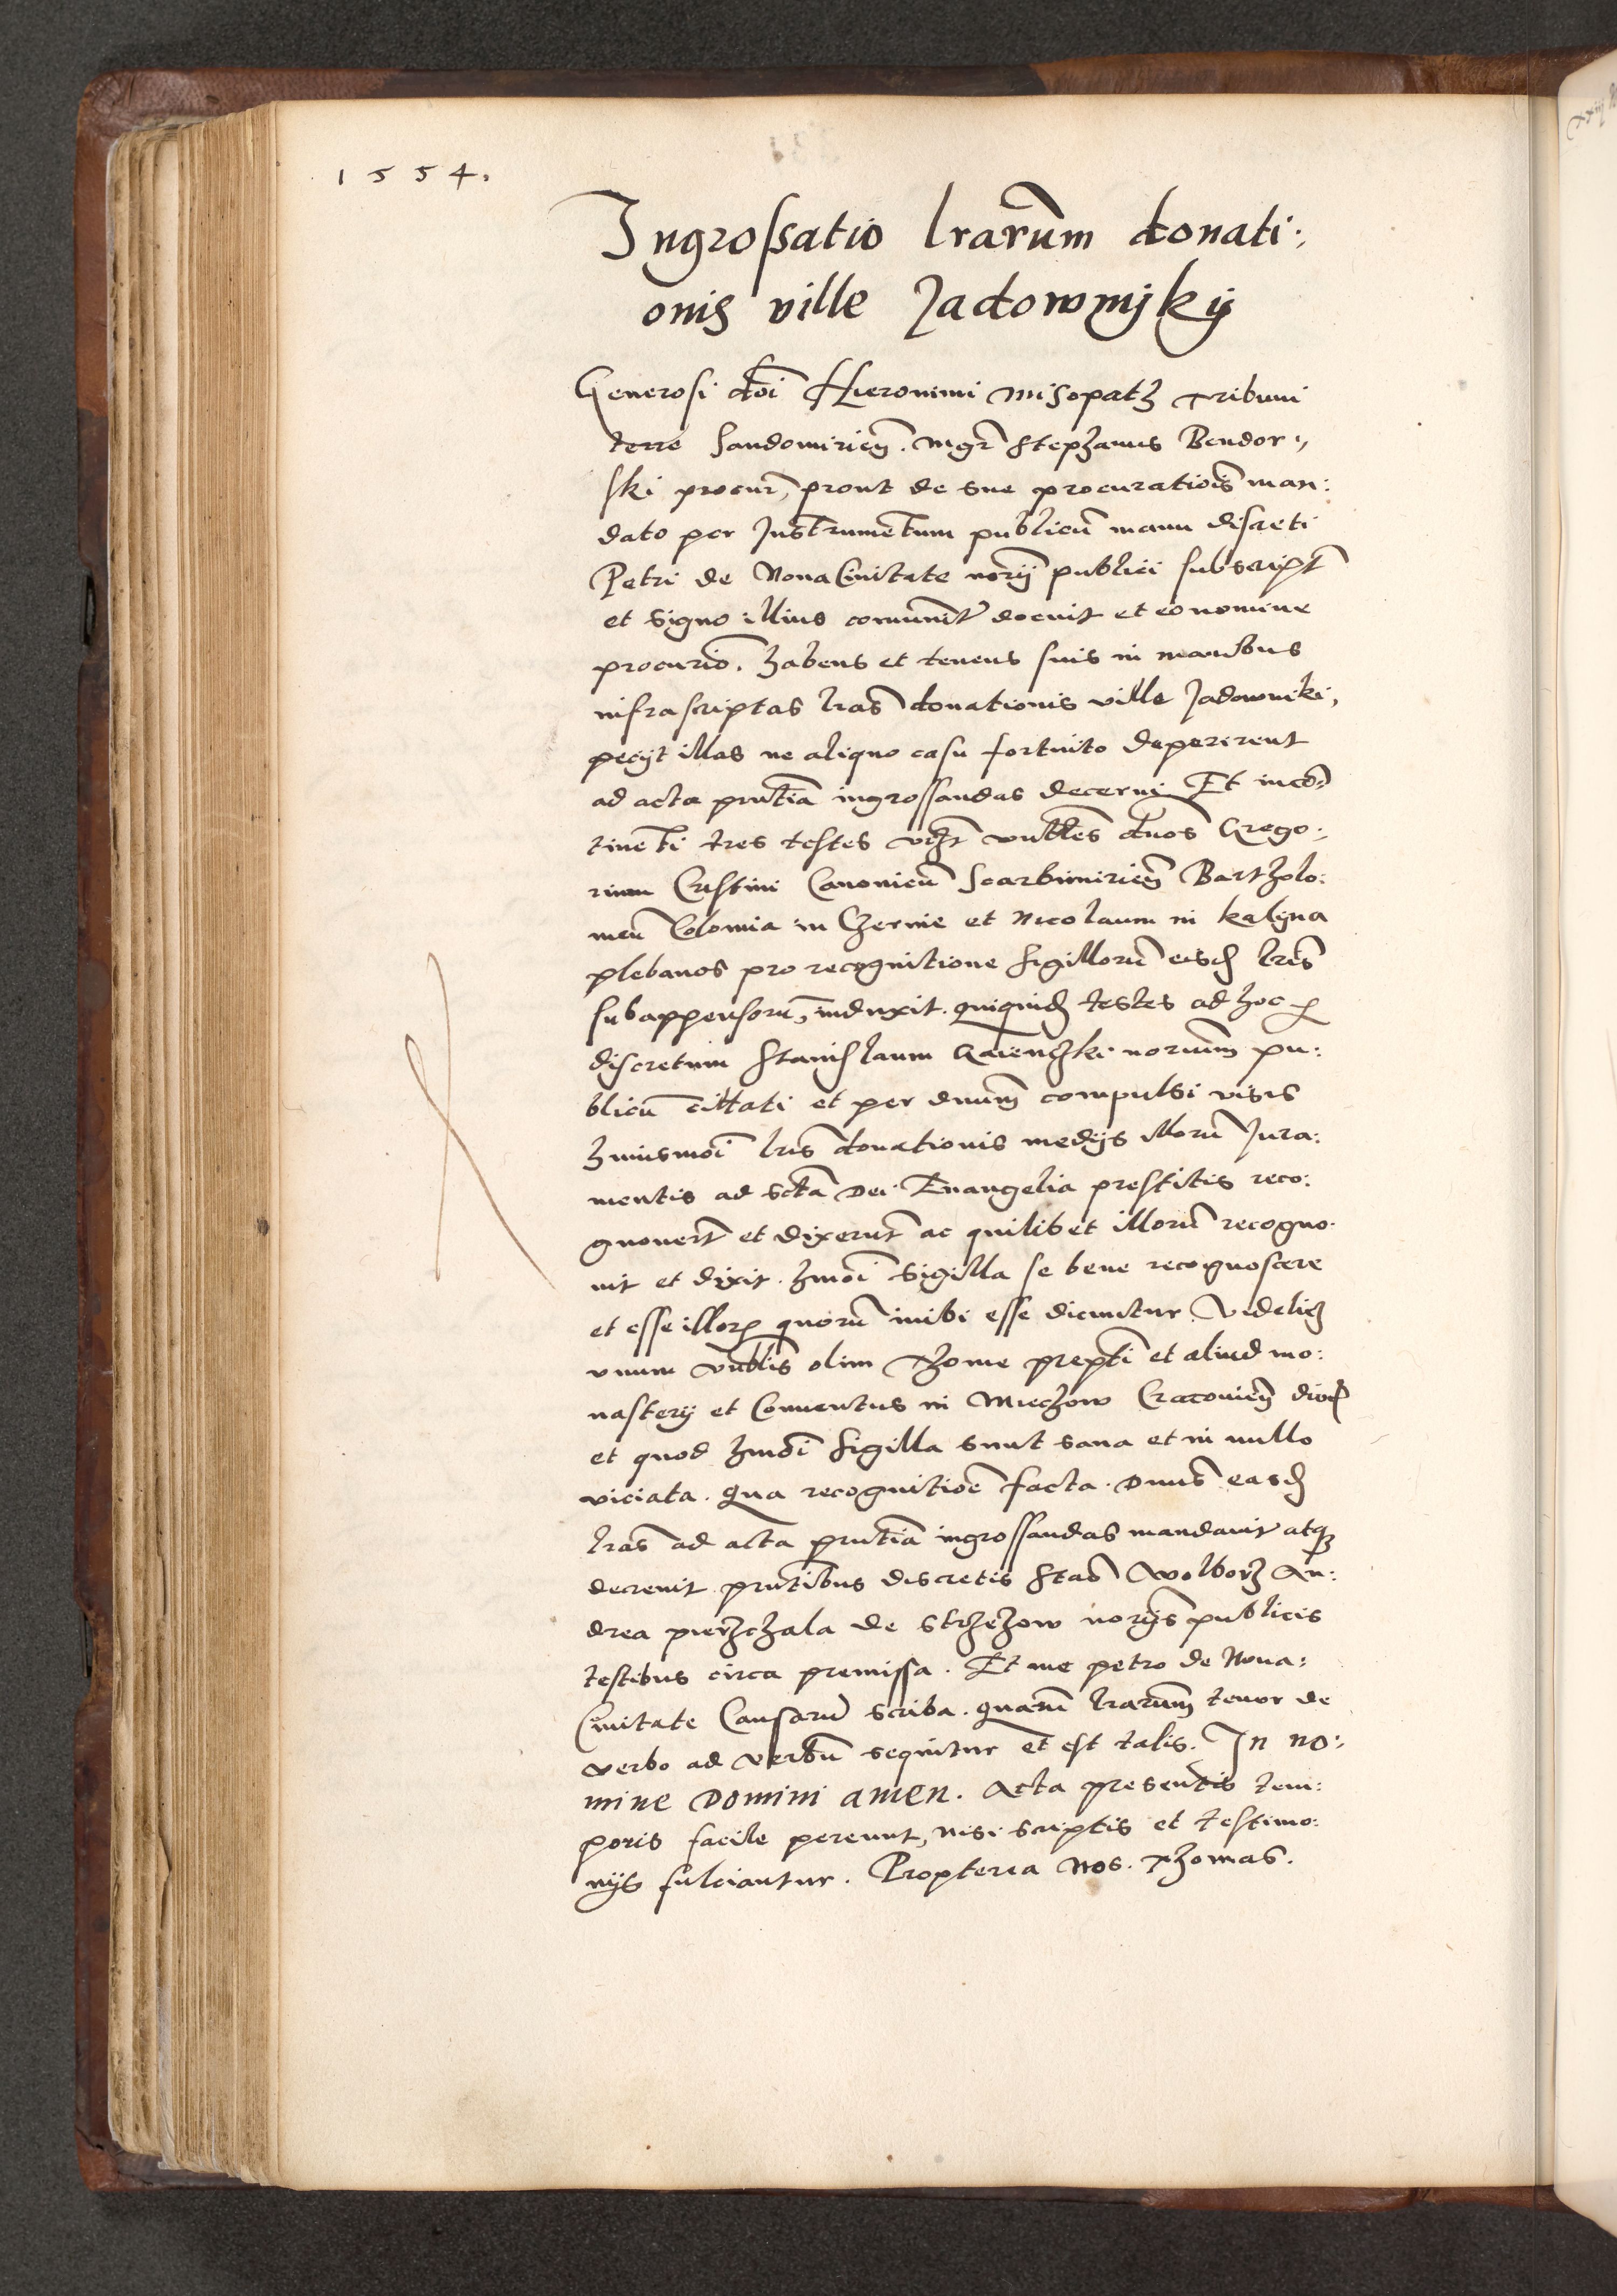 1554.
Ingrossatio lrarum donati:
onis ville Jadownyky
Generosi dni Hieronimi Misopatz Tribuni
terre Sandomirien. Mgr Stephanus Bendor:
ski procur, prout de sue procurationis man:
dato per Instrumentum publicu manu discreti
Petri de Nova Civitate norij publici subscript
et signo illius comunit docuit et eo nomine
procurio. habens et tenens suis in manibus
infrascriptas lras donationis ville Jadowniki,
pecijt illas ne aliquo casu fortuito deperirent
ad acta pntia ingrossandas decerni Et inco:
tinenti tres testes vzt vnbles dnos Grego:
rium Cristini Canonicu Scarbimirien Bartholo:
meu Colomia in Czernie et Nicolaum in Kalyna
plebanos pro recognitione sigilloru eisd lris
subappensoru, induxit. quiquid testes ad hoc p
discretum Stanislaum Gaienczki norium pu:
blicu cittati et per dnum compulsi visis
huiusmoi lris donationis medijs illoru Jura:
mentis ad scta Dei Evangelia prestitis reco:
gnovert et dixerut ac quilibet illoru recogno:
vit et dixit. hmoi sigilla se bene recognoscere
et esse illor quoru inibi esse dicuntur Videlicz
vnum vnblis olim Thome prepti et aliud mo:
nasterij et Conventus in Miechow Cracovien dioc
et quod hmoi sigilla sunt sana et in nullo
viciata. Qua recognitioe facta. Dnus easd
lras ad acta pntia ingrossandas mandavit atq
decrevit pntibus discretis Stao Wolborz An:
drea pierzchala de Strzezow norijs publicis
testibus circa premissa. Et me petro de Nova:
Civitate Causaru scriba. quaru lrarum tenor de
verbo ad verbu sequitur et est talis. In no:
mine Domini amen. Acta presentis tem:
poris facile pereunt, nisi scriptis et testimo:
nijs fulciantur. Propterea Nos. Thomas.